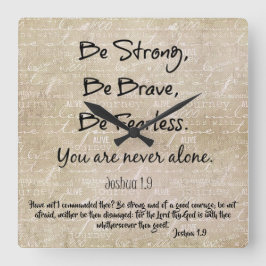 Be Strong,
Be Brave,
Be Fearless.
You are never alone.
Joshua 1.9
Have not I commanded thee? Be strong and of a good courage; be not
afraid, neither be thou dismayed: for the Lord thy God is with thee
whithersoever thou goest.
Joshua 1.9
ALIVE
ALIVE
journey